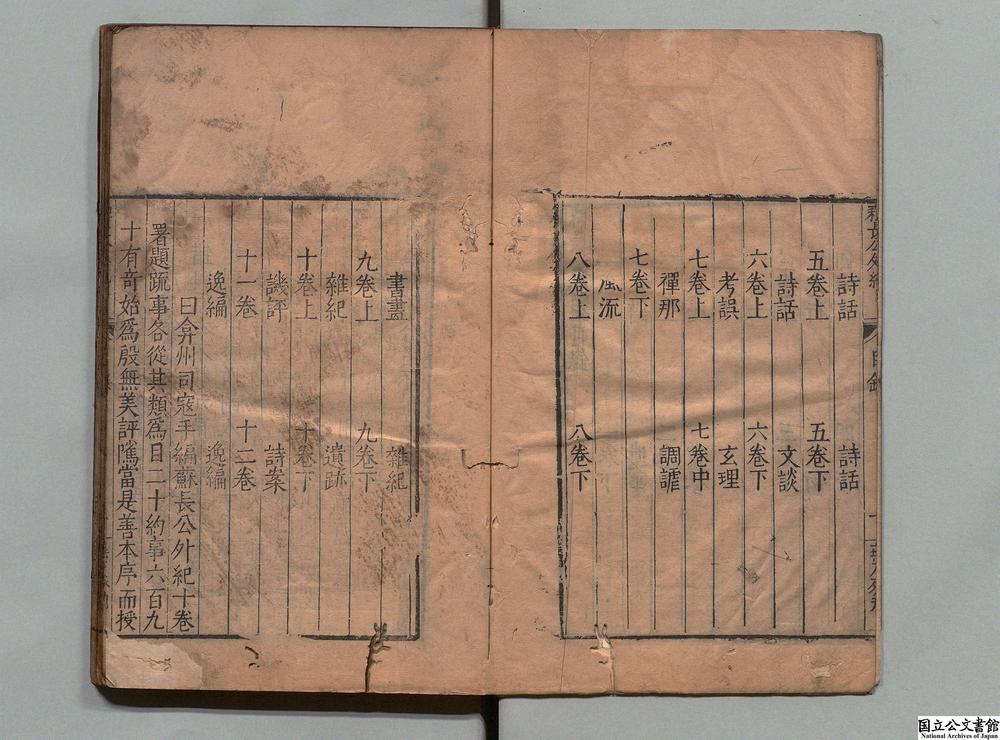 蘇長公外紀
目錄
詩話 詩話
五卷上 五卷下
詩話 文談
六卷上 六卷下
考誤 玄理
七卷上 七卷中
禪那 調謔
七卷下
風流
八卷上 八卷下
書畫 雜紀
九卷上 九卷下
雜紀 遺跡
十卷上 十卷下
譏評 詩案
十一卷 十二卷
逸編 逸編
曰弇州司寇手編蘇長公外紀十卷
署題疏事各從其類為目二十約事六百九
十有奇始為殷無美評隲當是善本序而授
国立公文書館
National Archives of Japan